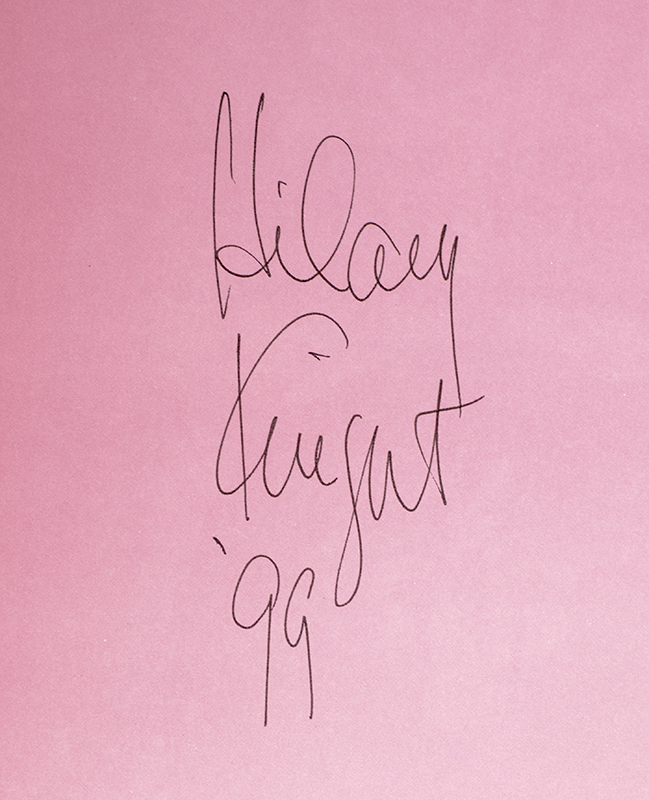 Hilary
Knight
'99